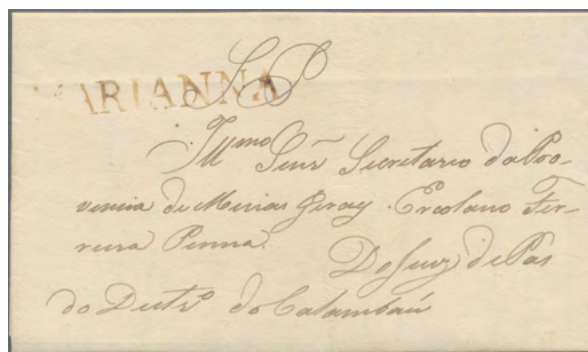 SP
MARIANNA
Illmo Senr Secretario da Pro-
vincia de Minas Geraes Ercolano Fer-
reira Penna.
Do Juiz de Pas
do Destro do Calambaú